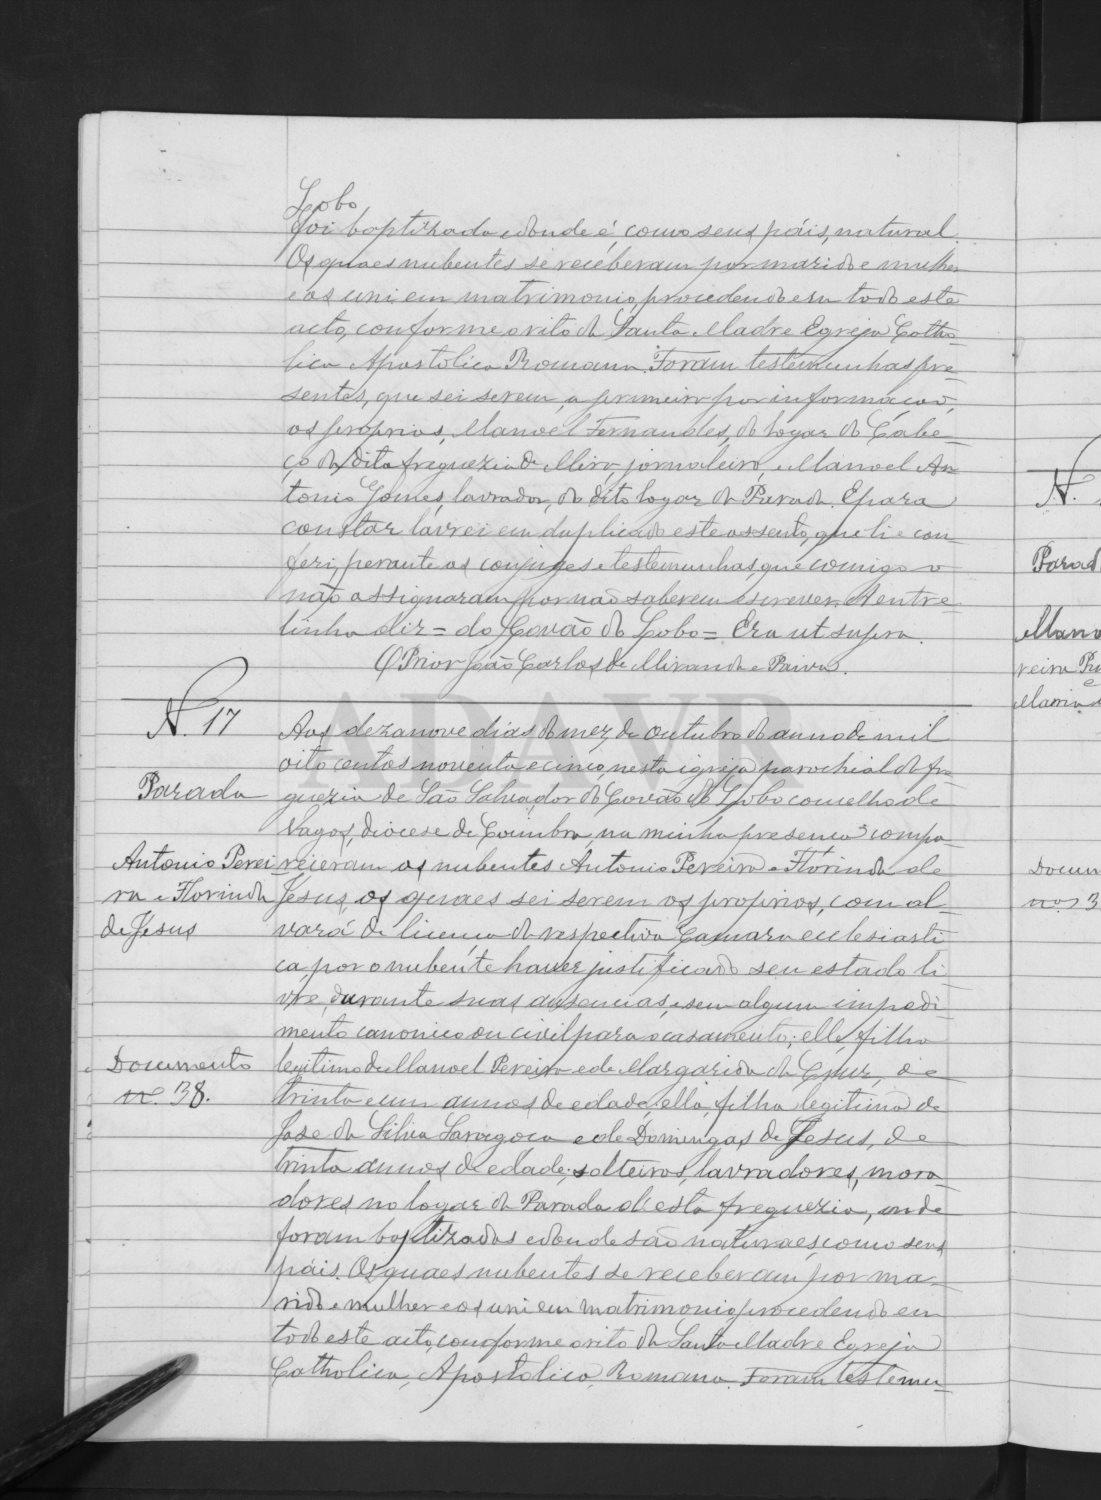 Lobo
foi baptizada e donde é, como seus páis, natural.
Os quaes nubentes se receberam por marido e mulher
e os uni em matrimonio, procedendo em todo este
acto, conforme o rito da Santa Madre Egreja Catho-
lica Apostolica Romana. Foram testemunhas pre-
sentes, que sei serem, o primeiro por informação,
os proprios, Manoel Fernandes, do logar do Cabe-
ço da dita freguezia de Mira, jornaleiro, e Manoel An-
tonio Gomes, lavrador, do dito logar da Parada. E para
constar lavrei em duplicado este assento, que li e con-
feri, perante os conjuges e testemunhas, que comigo o
não assignaram por não saberem escrever. A entre
linha diz = do Covão do Lobo = Era ut supra.
O Prior João Carlos de Miranda e Paiva.
N. 17
Parada
Antonio Perei
ra e Florinda
de Jesus
Documento
nº. 38.
Aos dezanove dias do mez de Outubro do anno de mil
oito centos noventa e cinco, nesta igreja parochial da fre-
guezia de São Salvador do Covão do Lobo concelho de
Vagos, diocese de Coimbra, na minha presença compa-
receram os nubentes Antonio Pereira e Florinda de
Jesus, os quaes sei serem os proprios, com al-
vará de licença da respectiva Camara ecclesiasti
ca, por o nubente haver justificado seu estado li
vre, durante suas ausencias, e sem algum impedi-
mento canonico ou civil para o casamento; elle, filho
legitimo de Manoel Pereira e de Margarida da Cruz, de
trinta e um annos de edade, ella, filha legitima de
José da Silva Saragoça e de Domingas de Jesus, de
trinta annos de edade; solteiros, lavradores, mora-
dores no logar da Parada d'esta freguezia, onde
foram baptizados e donde são naturaes, como seus
páis. Os quaes nubentes se receberam por ma-
rido e mulher e os uni em matrimonio, procedendo em
todo este acto, conforme o rito da Santa Madre Egreja
Catholica, Apostolica, Romana. Foram testemu-
N.
Parad
Mano
reira
e
Maria
Docum
nº. 3
ADAVR